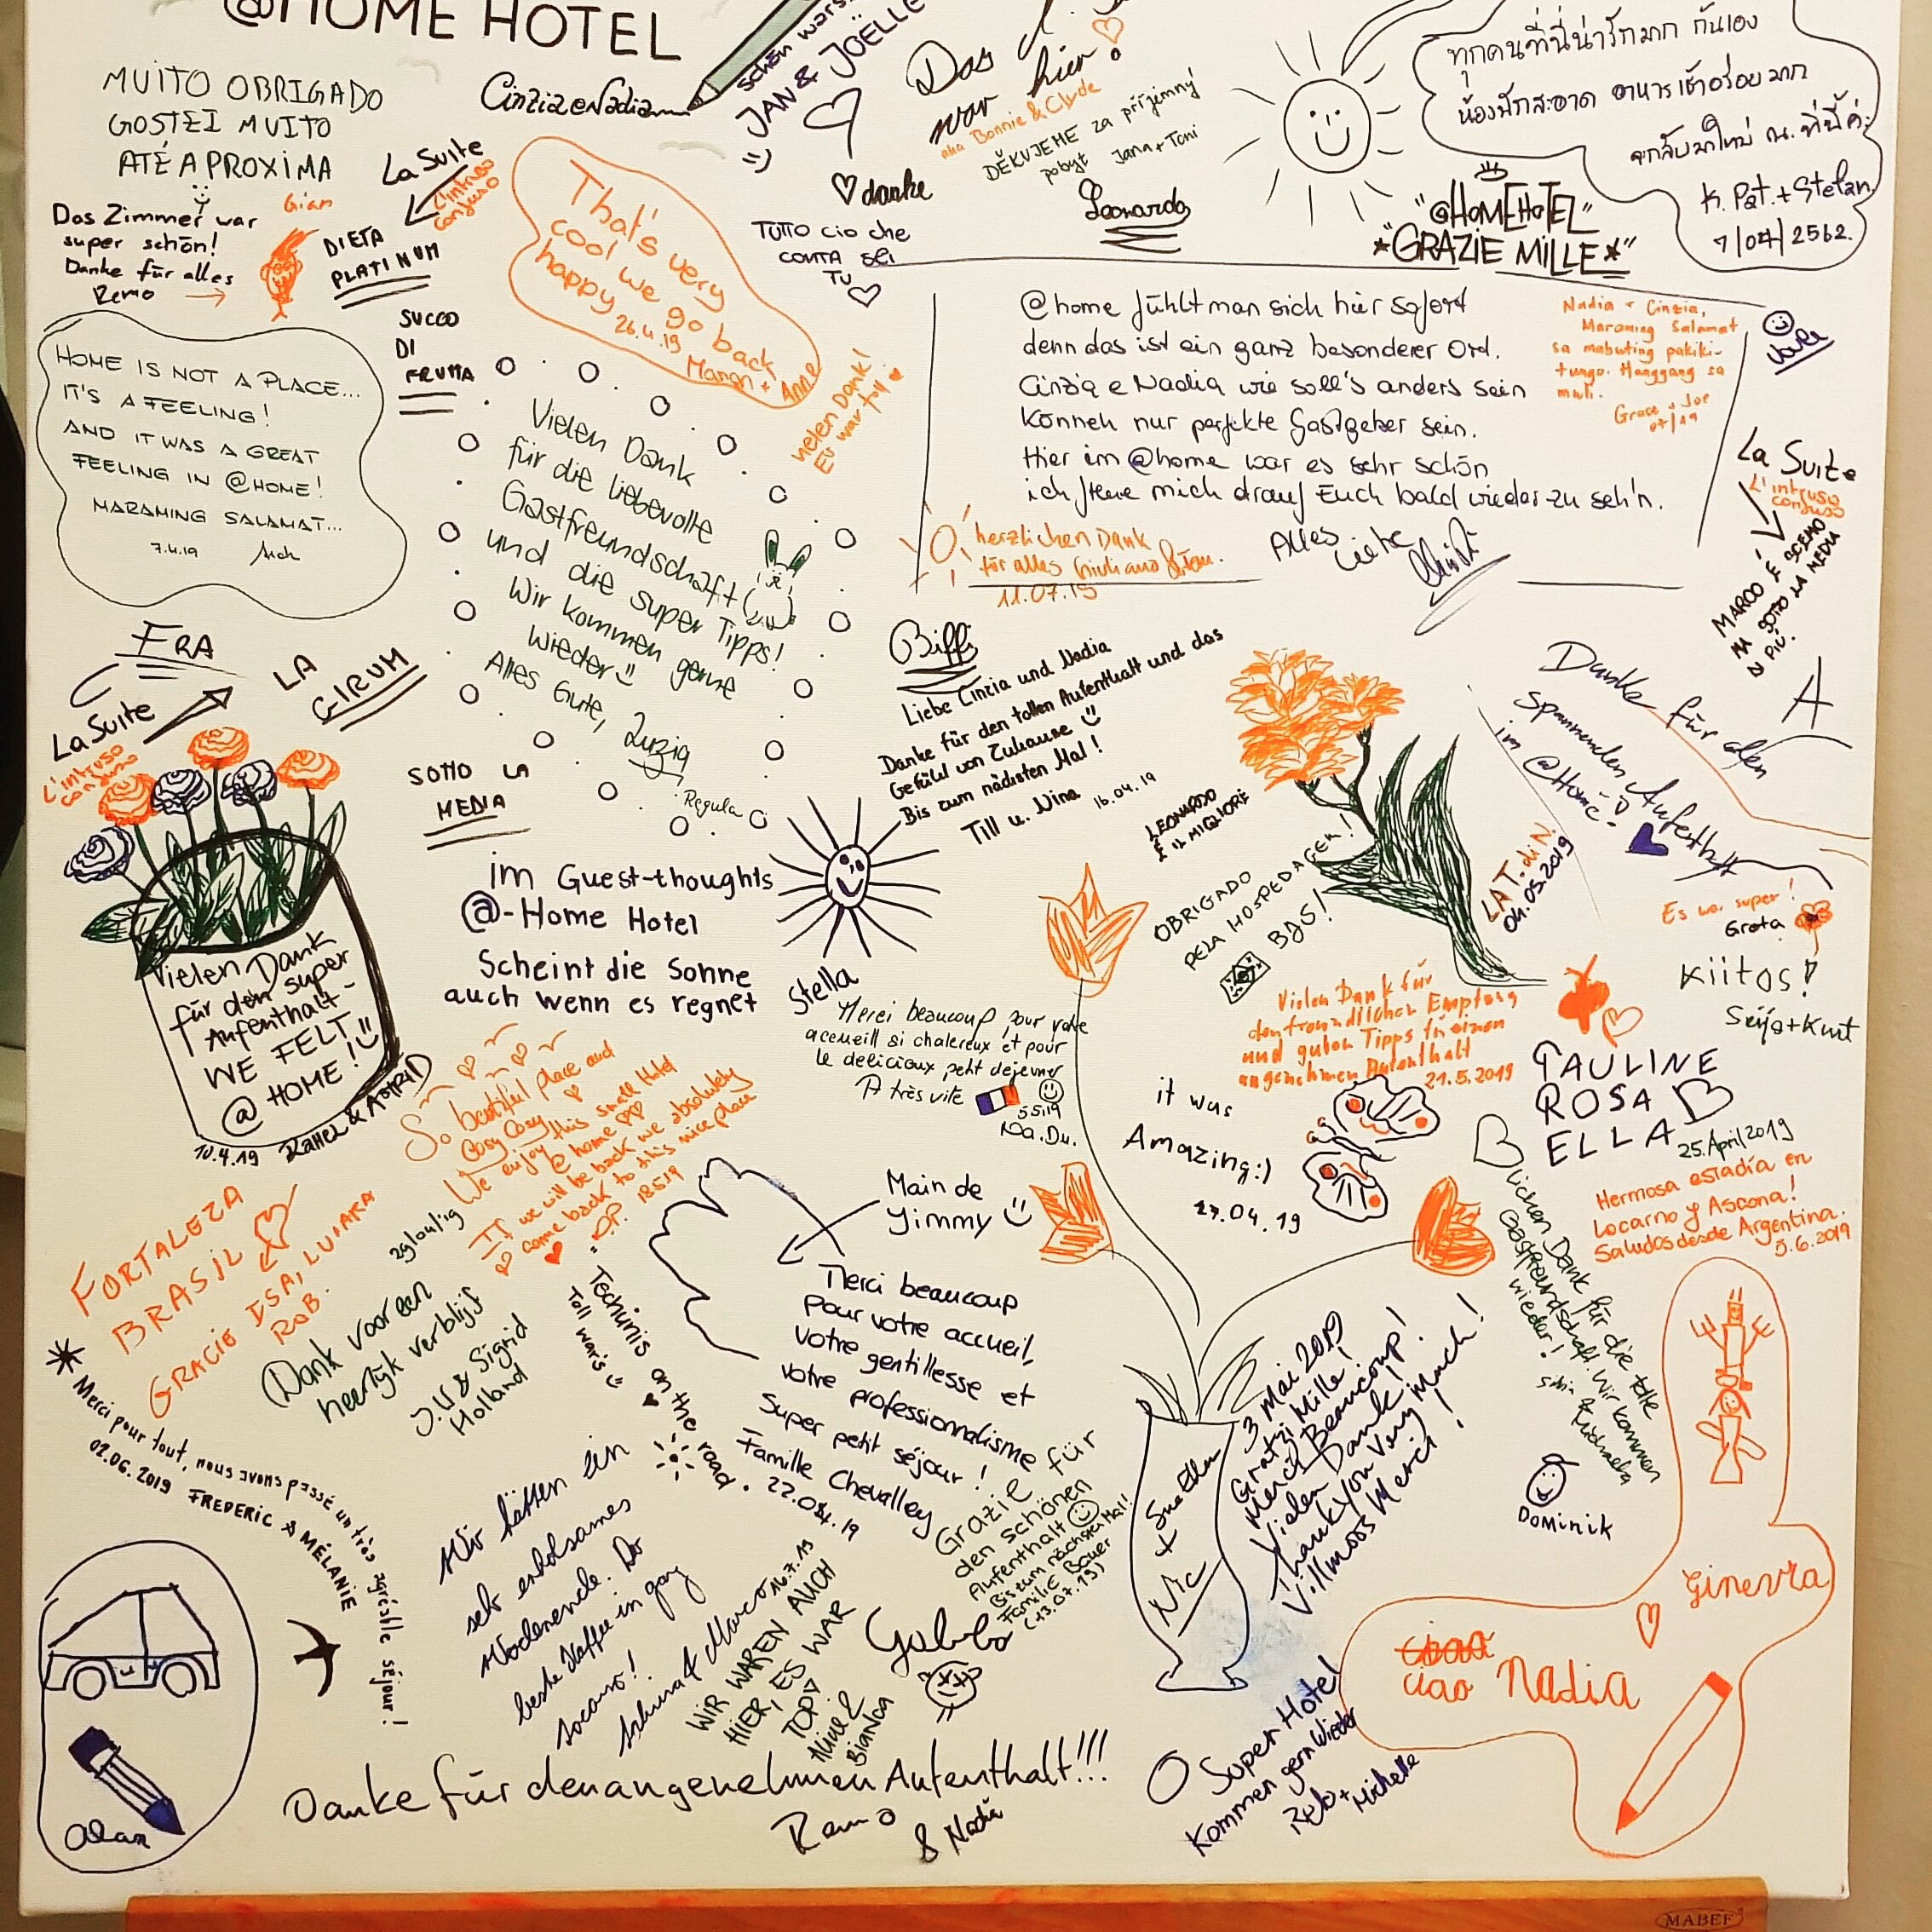 @HOME HOTEL
MUITO OBRIGADO
GOSTEI MUITO
ATÉ A PROXIMA
Cinzia e Nadia
schön wars
JAN & JOËLLE
Das
war hier!
aka Bonnie & Clyde
DĚKUJEME za příjemný
pobyt Jana + Toni
♡ danke
Leonardo
ทุกคนที่นี่น่ารักมาก กันเอง
ห้องพักสะอาด อาหารเช้าอร่อยมาก
จะกลับมาใหม่ ณ. ที่นี้ค่ะ
K. Pat. + Stefan
7/04/2562.
"@HOMEHOTEL"
*GRAZIE MILLE*"
Das Zimmer war
super schön!
Danke für alles
Remo →
Gian
La Suite
L'intruso
confuso
DIETA
PLATINUM
SUCCO
DI
FRUTTA
That's very
cool we go back
happy
26.4.19
Manon + Anne
TUTTO ciò che
CONTA SEI
TU ♡
Vielen Dank!
Es war toll
HOME IS NOT A PLACE...
IT'S A FEELING!
AND IT WAS A GREAT
FEELING IN @HOME!
MARAMING SALAMAT...
7.4.19
Vielen Dank
für die liebevolle
Gastfreundschaft
und die super Tipps!
Wir kommen gerne
wieder
Alles Gute,
Regula
@home fühlt man sich hier sofort
denn das ist ein ganz besonderer Ort.
Cinzia e Nadia wie soll's anders sein
können nur perfekte Gastgeber sein.
Hier im @home war es sehr schön
ich freue mich drauf Euch bald wieder zu seh'n.
Alles Liebe
Nadia + Cinzia,
Maraming Salamat
sa mabuting pakiki-
tungo. Hanggang sa
muli.
Grace + Joe
07/19
herzlichen Dank
für alles Giuliano
11.07.19
La Suite
L'intruso
confuso
MARCO È SCEMO
MA SOTTO LA MEDIA
DI PIÙ.
FRA
LA
GIRUM
La Suite
L'intruso
confuso
SOTTO LA
MEDIA
Biffi
Liebe Cinzia und Nadia
Danke für den tollen Aufenthalt und das
Gefühl von Zuhause
Bis zum nächsten Mal!
Till u. Nina 16.04.19
LEONARDO
È IL MIGLIORE
Danke für den
spannenden Aufenthalt
im @Home
LAT. di N.
04.05.2019
OBRIGADO
PELA HOSPEDAGEM!
BJS!
Es war super!
Greta
Kiitos!
Seija + Kurt
im Guest-thoughts
@-Home Hotel
Scheint die Sonne
auch wenn es regnet
Stella
Vielen Dank
für den super
Aufenthalt -
WE FELT
@ HOME!
10.4.19 RAHEL & ASTRID
Merci beaucoup pour votre
accueill si chalereux et pour
le délicioux petit dejeuner
A très vite
5519
Vielen Dank für
den freundlichen Empfang
und guten Tipps für einen
angenehmen Aufenthalt
21.5.2019
PAULINE
ROSA
ELLA
25. April 2019
it was
Amazing :)
27.04.19
So beautiful place and
Cosy Cosy
We enjoy this small Hotel
@ home
we will be back we absolutely
come back to this nice place
18519
FORTALEZA
BRASIL
GRACIE ISA, LUIARA
ROB.
Dank voor een
heerlijk verblijf
J.W & Sigrid
Holland
Main de
Yimmy
Merci beaucoup
pour votre accueil,
votre gentillesse et
votre professionnalisme
Super petit séjour!
Famille Chevalley
22.04.19
Techunis on the road.
Toll war's
Hermosa estadía en
Locarno y Ascona!
Saludos desde Argentina.
5.6.2019
lichen Dank für die tolle
Gastfreundschaft. Wir kommen
wieder!
Merci pour tout, nous avons passé un très agréable séjour!
02.06.2019 FREDERIC & MÉLANIE
3 Mai 2019
Gratzi Mille
Merci Beaucoup!
Vielen Dank
Thank you Very Much!
Villmoos Merci!
Sue Ellen
+
Nic
Wir hätten ein
sehr erholsames
Wochenende. Der
beste Kaffee in ganz
Locarno!
& Marco 16.7.19
Grazie für
den schönen
Aufenthalt
Bis zum nächsten Mal!
Familie Bauer
(13.07.19)
WIR WAREN AUCH
HIER, ES WAR
TOP
Bianka
DOMINIK
Ginevra
ciao Nadia
alan
Danke für den angenehmen Aufenthalt!!!
Remo
& Nadia
Super Hotel
Kommen gern wieder
Reto + Michelle
MABEF